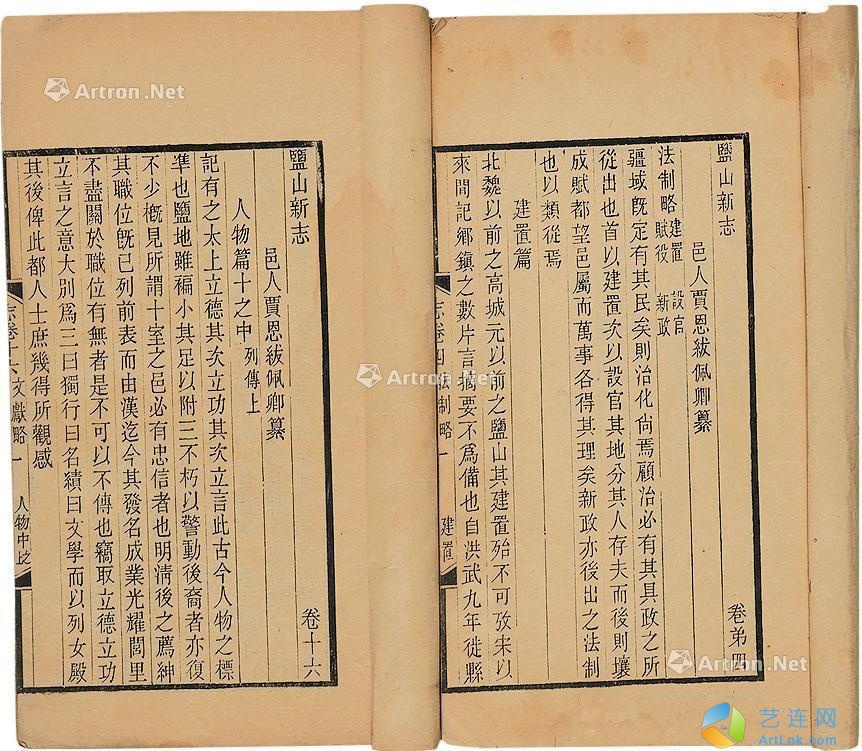 鹽山新志
卷弟四
邑人賈恩紱佩卿纂
法制略
建置 設官
賦役 新政
疆域旣定有其民矣則治化尙焉顧治必有其具政之所
從出也首以建置次以設官其地分其人存夫而後則壤
成賦都望邑屬而萬事各得其理矣新政亦後出之法制
也以類從焉
建置篇
北魏以前之高城元以前之鹽山其建置殆不可攷宋以
來閒記鄉鎮之數片言摘要不爲備也自洪武九年徙縣
志卷四
制略一
建置
鹽山新志
卷十六
邑人賈恩紱佩卿纂
人物篇十之中
列傳上
記有之太上立德其次立功其次立言此古今人物之標
準也鹽地雖褊小其足以附三不朽以警動後裔者亦復
不少槪見所謂十室之邑必有忠信者也明淸後之薦紳
其職位旣已列前表而由漢迄今其發名成業光耀閭里
不盡關於職位有無者是不可以不傳也竊取立德立功
立言之意大別爲三曰獨行曰名績曰文學而以列女殿
其後俾此都人士庶幾得所觀感
志卷十六
文獻略一
人物中上
Artron.Net
Artron.Net
Artron.Net
艺连网
ArtLnk.com